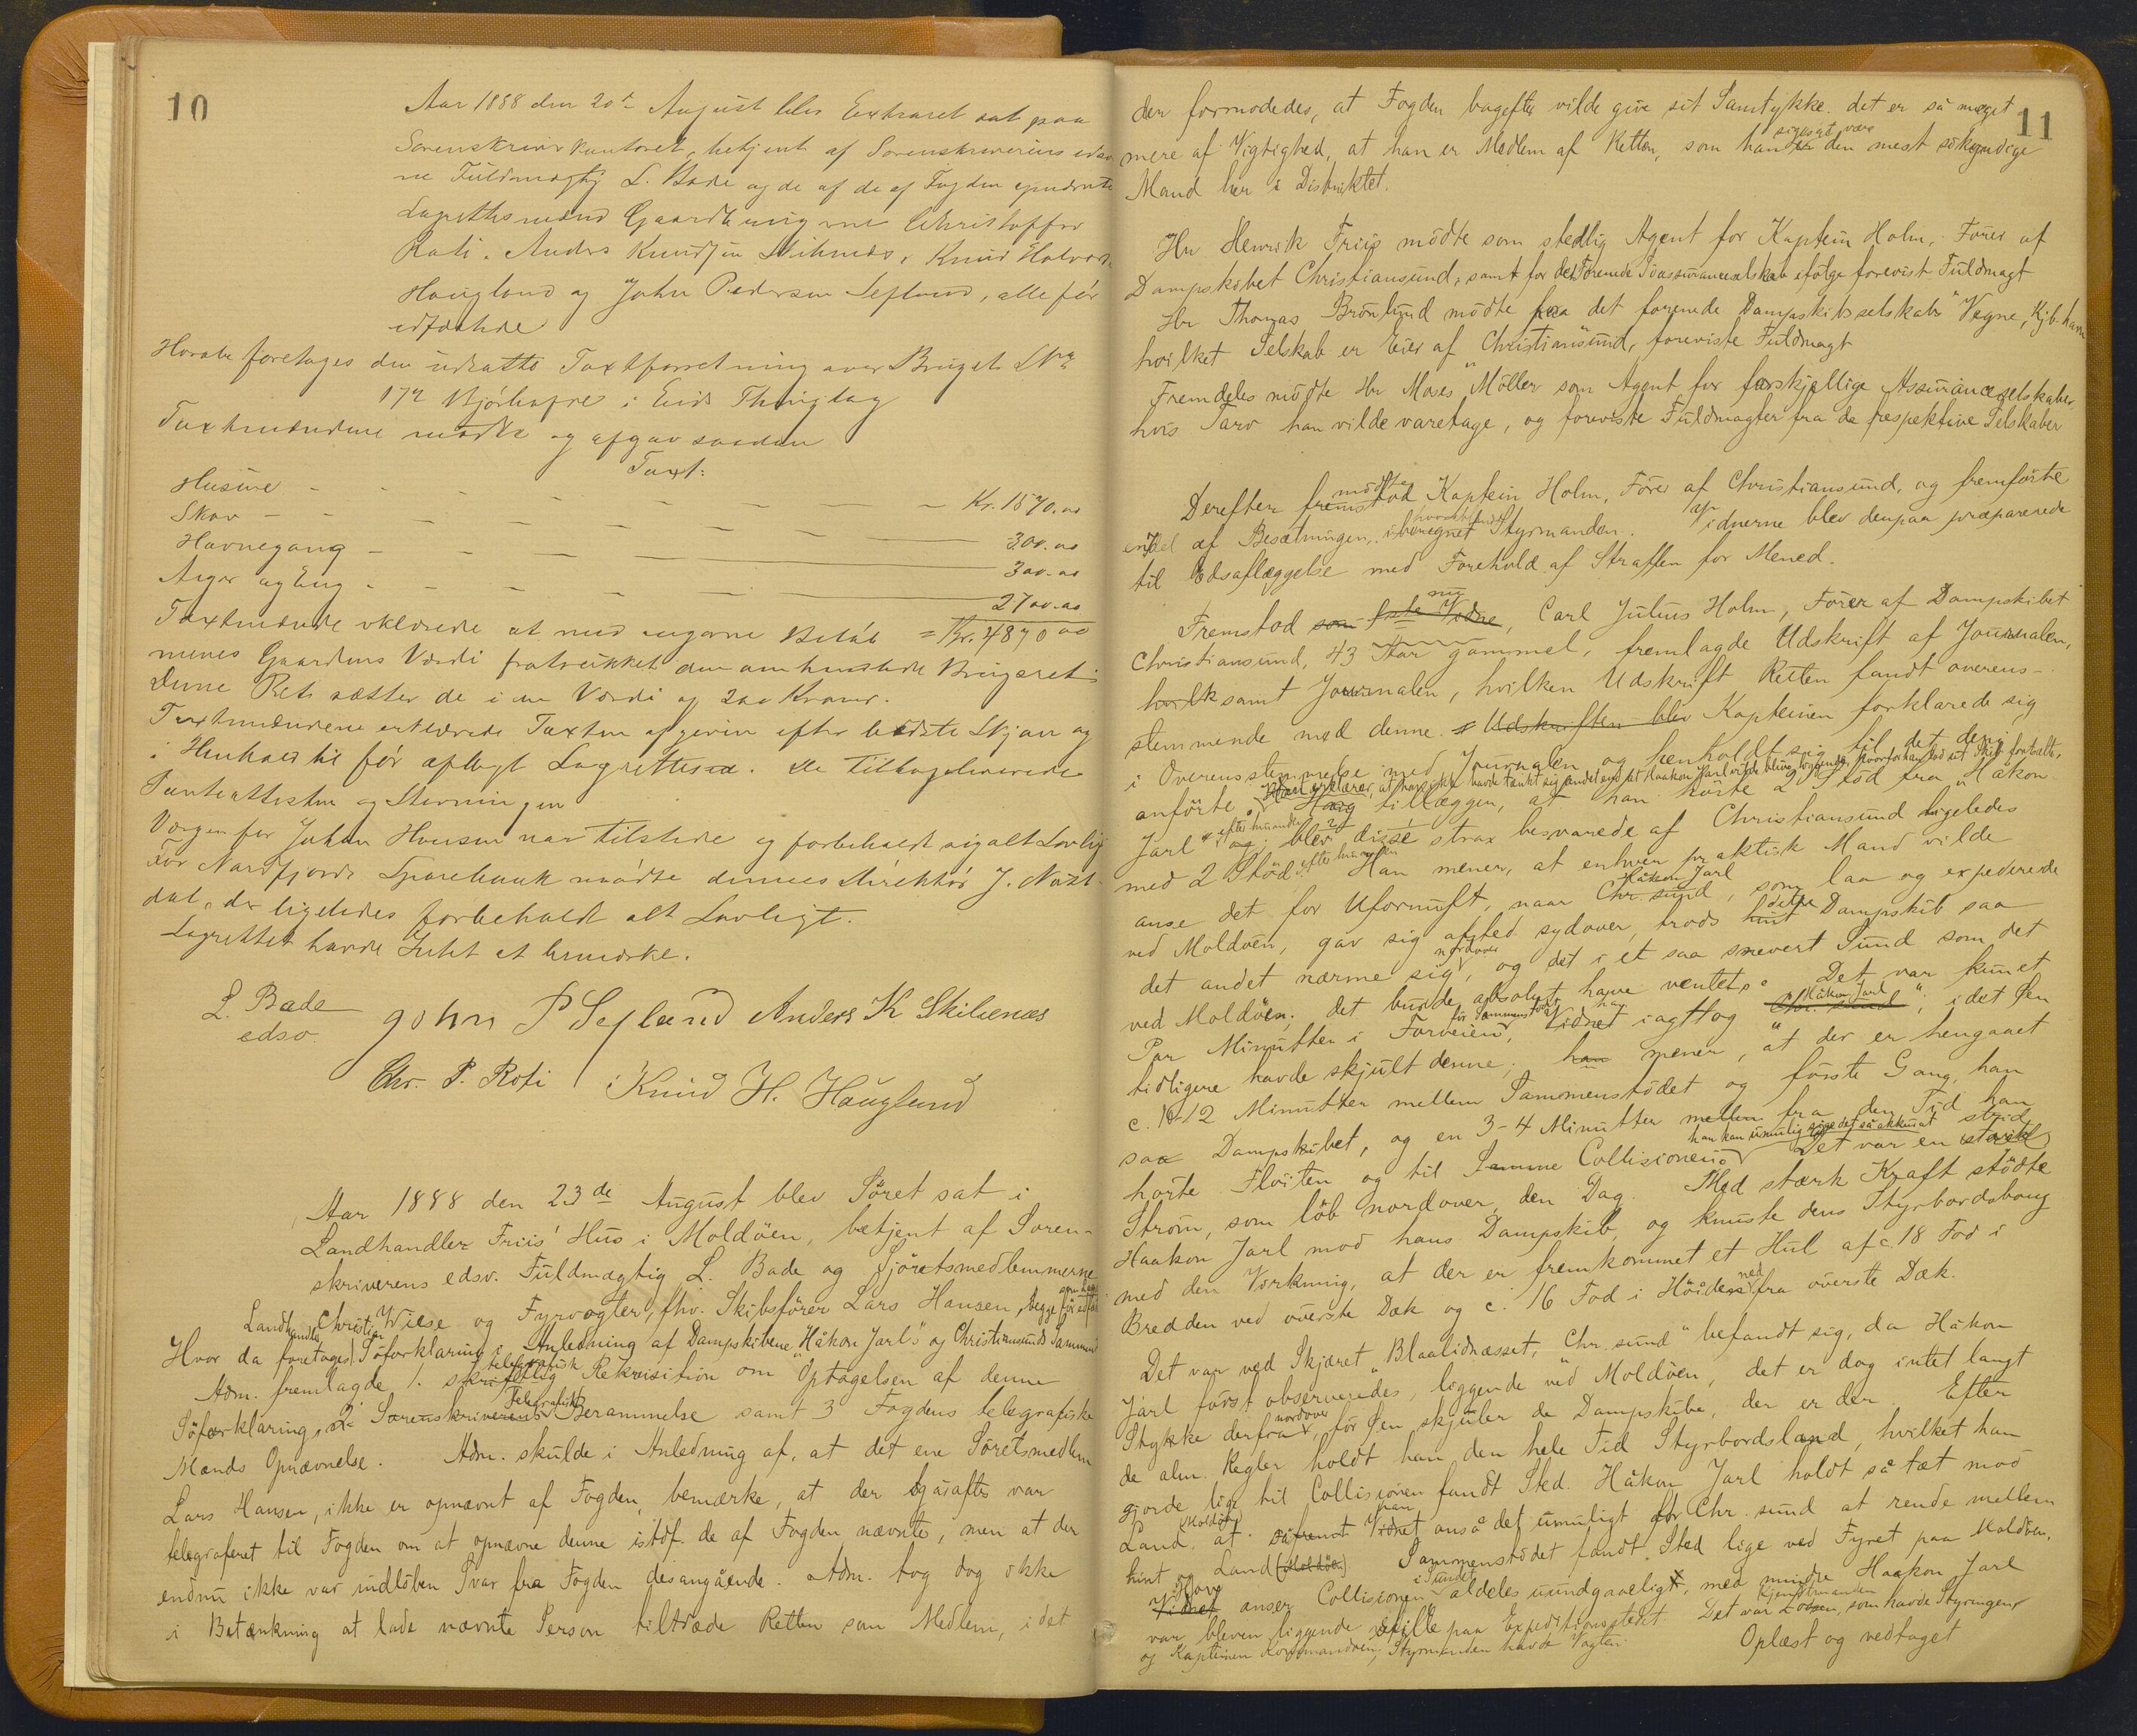 10
Aar 1888 den 20de August blev Extraret sat paa
Sorenskriverkontoret, betjent af Sorenskriverens edsv
ne Fuldmægtig L. Bade og de af de af Fogden opnævnte
Lagrettesmænd Gaardbrugerne Christoffer
Roti. Anders Knudsen Skilnæs, Knud Halvors.
Hougland og John Pedersen Sefland, alle før
edfæstede
Hvorda foretages den udsatte Taxtforretning over Bruget No
172 Bjørhovde i Eids Thinglag
Taxtmændene mødte og afgav saadan
Taxt:
Husene - - - - - - - Kr. 1570.00
Skov - - - - - - 300.00
Havnegang - - - - 300.00
Ager og Eng - - - - 2700.00
Taxtmændene erklærede at med angivne Beløb = Kr. 4870 00
menes Gaardens Værdi fratrukket den omhandlede Brugsret.
Denne Ret sætter de i en Værdi af 200 Kroner.
Taxtmændene erklærede Taxten afgiven efter bedste Skjøn og
i Henhold til før aflagt Lagrettesed. De tilbageleverede
Panteattesten og Stevningen
Værgen for Johan Hansen var tilstede og forbeholdt sig alt Lovlig
For Nordfjords Sparebank mødte dennes Direktør J. Nøst-
dal, der ligeledes forbeholdt alt Lovligt.
Lagrettet havde Intet at bemærke.
L. Bade
edsv.
John P Sefland Anders K Skilnæs
Chr. P. Roti Knud H. Hauglund
Aar 1888 den 23de August blev Søret sat i
Landhandler Friis' Hus i Moldöen, betjent af Soren-
skriverens edsv. Fuldmægtig L. Bade og Sjøretsmedlemmerne
Landhandler Christian Wiese og Fyrvogter, fhv. Skibsfører Lars Hansen, begge før edf
Hvor da foretages Søforklaring i Anledning af Dampskibene "Håkon Jarl's" og Christiansunds Sammen
Adm. fremlagde 1. skriftlig telegrafisk Rekvisition om Optagelsen af denne
Søforklaring, 2 Sorenskriverens Telegrafiske Berammelse samt 3 Fogdens telegrafiske
Mænds Opnævnelse. Adm. skulde i Anledning af, at det ene Søretsmedlem
Lars Hansen, ikke er opnævnt af Fogden, bemærke, at der igåraftes var
telegraferet til Fogden om at opnævne denne istdf. de af Fogden nævnte, men at der
endnu ikke var indløben Svar fra Fogden desangående. Adm. tog dog ikke
i Betænkning at lade nævnte Person tiltræde Retten som Medlem, idet
11
der formodedes, at Fogden bagefter vilde give sit Samtykke. det er så meget
mere af Vigtighed, at han er Medlem af Retten, som han er siges at være den mest søkyndige
Mand her i Distriktet.
Hr Henrik Friis mødte som stedlig Agent for Kaptein Holm, Fører af
Dampskibet Christiansund, samt for det Forenede Søassuranceselskab ifølge forevist Fuldmagt
Hr Thomas Brønlund mødte paa det forenede Dampskibsselskabs Vegne, Kjb.havn
hvilket Selskab er Eier af "Christiansund, foreviste Fuldmagt
Fremdeles mødte Hr Moses Møller som Agent for forskjellige Assuranceselskaber,
hvis Tarv han vilde varetage, og foreviste Fuldmagter fra de respektive Selskaber
Derefter fremstod mødte Kaptein Holm, Fører af Christiansund, og fremførte
endel af Besætningen, iberegnet Styrmanden. Vidnerne blev derpaa præparerede
til Edsaflæggelse med Forehold af Straffen for Mened.
Fremstod som 1ste Vidne, nu Carl Julius Holm, Fører af Dampskibet
Christiansund, 43 Aar gammel, fremlagde Udskrift af Journalen,
hvilk samt Journalen, hvilken Udskrift Retten fandt overens-
stemmende med denne. Udskriften blev Kapteinen forklarede sig
i Overensstemmelse med Journalen og henholdt sig til det deri
anførte. Han erklærer, at han ikke havde tænkt sig andet end at Haakon Jarl vilde blive liggende, hvorfor han lod sit Skib fortsætte,
Hørig tillæggen, at han hørte 2 Stød fra "Håkon
Jarl" efter hinanden og blev disse strax besvarede af Christiansund ligeledes
med 2 Stød efter hinanden Han mener, at enhver praktisk Mand vilde
anse det for Ufornuft, naar Chr. sund Håkon Jarl, som laa og expederede
ved Moldöen, gav sig afsted sydover, trods hint dette Dampskib saa
det andet nærme sig nordover, og det i et saa snevert Sund som det
ved Moldöen; det burde absolut have ventet. Det var kun et
Par Minutter i Forveien, før Sammenstødet Vidnet han iagttog Chr. sund Håkon Jarl", idet Øen
tidligere havde skjult denne; han mener, at der er hengaaet
c. 10-12 Minutter mellem Sammenstødet og første Gang, han
saa Dampskibet, og en 3-4 Minutter mellem fra den Tid han
hørte Fløiten og til Samme Collisionen; han kan umulig sige det så akkurat Det var en stærk strid
Strøm, som løb nordover, den Dag. Med stærk Kraft stødte
Haakon Jarl mod hans Dampskib, og knuste dens Styrbordsboug
med den Virkning, at der er fremkommet et Hul af c. 18 Fod i
Bredden ved øverste Dæk og c. 16 Fod i Høiden ned fra øverste Dæk.
Det var ved Skjæret "Blaalidnæsset, Chr. sund" befandt sig, da Håkon
Jarl først observeredes, liggende ved Moldöen, det er dog intet langt
Stykke derfra nordover, før Øen skjuler de Dampskibe, der er der. Efter
de alm. Regler holdt han den hele Tid Styrbordsland, hvilket han
gjorde lige til Collisionen fandt Sted. Håkon Jarl holdt så tæt mod
Land Moldöen at såfremt Vidnet han anså det umuligt for Chr. sund at rende mellem
hint og Land (Moldöen) Sammenstødet fandt Sted lige ved Fyret paa Moldöen.
Vidnet Han anser Collisionen i Sundet aldeles uundgaaeligt, med mindre Haakon Jarl
var bleven liggende stille paa Expeditionsstedet. Det var Lodsen Kjendtmanden, som havde Styringen
og Kapteinen Kommandoen; Styrmanden havde Vagten. Oplæst og vedtaget